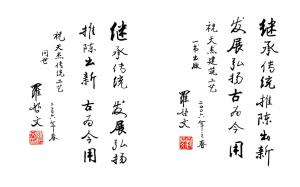 继承传统 推陈出新
发展弘扬 古为今用
祝天杰建筑工艺
一书出版
罗哲文
二〇〇六年春
继承传统 发展弘扬
推陈出新 古为今用
祝天杰传统工艺
问世
罗哲文
二〇〇六年春